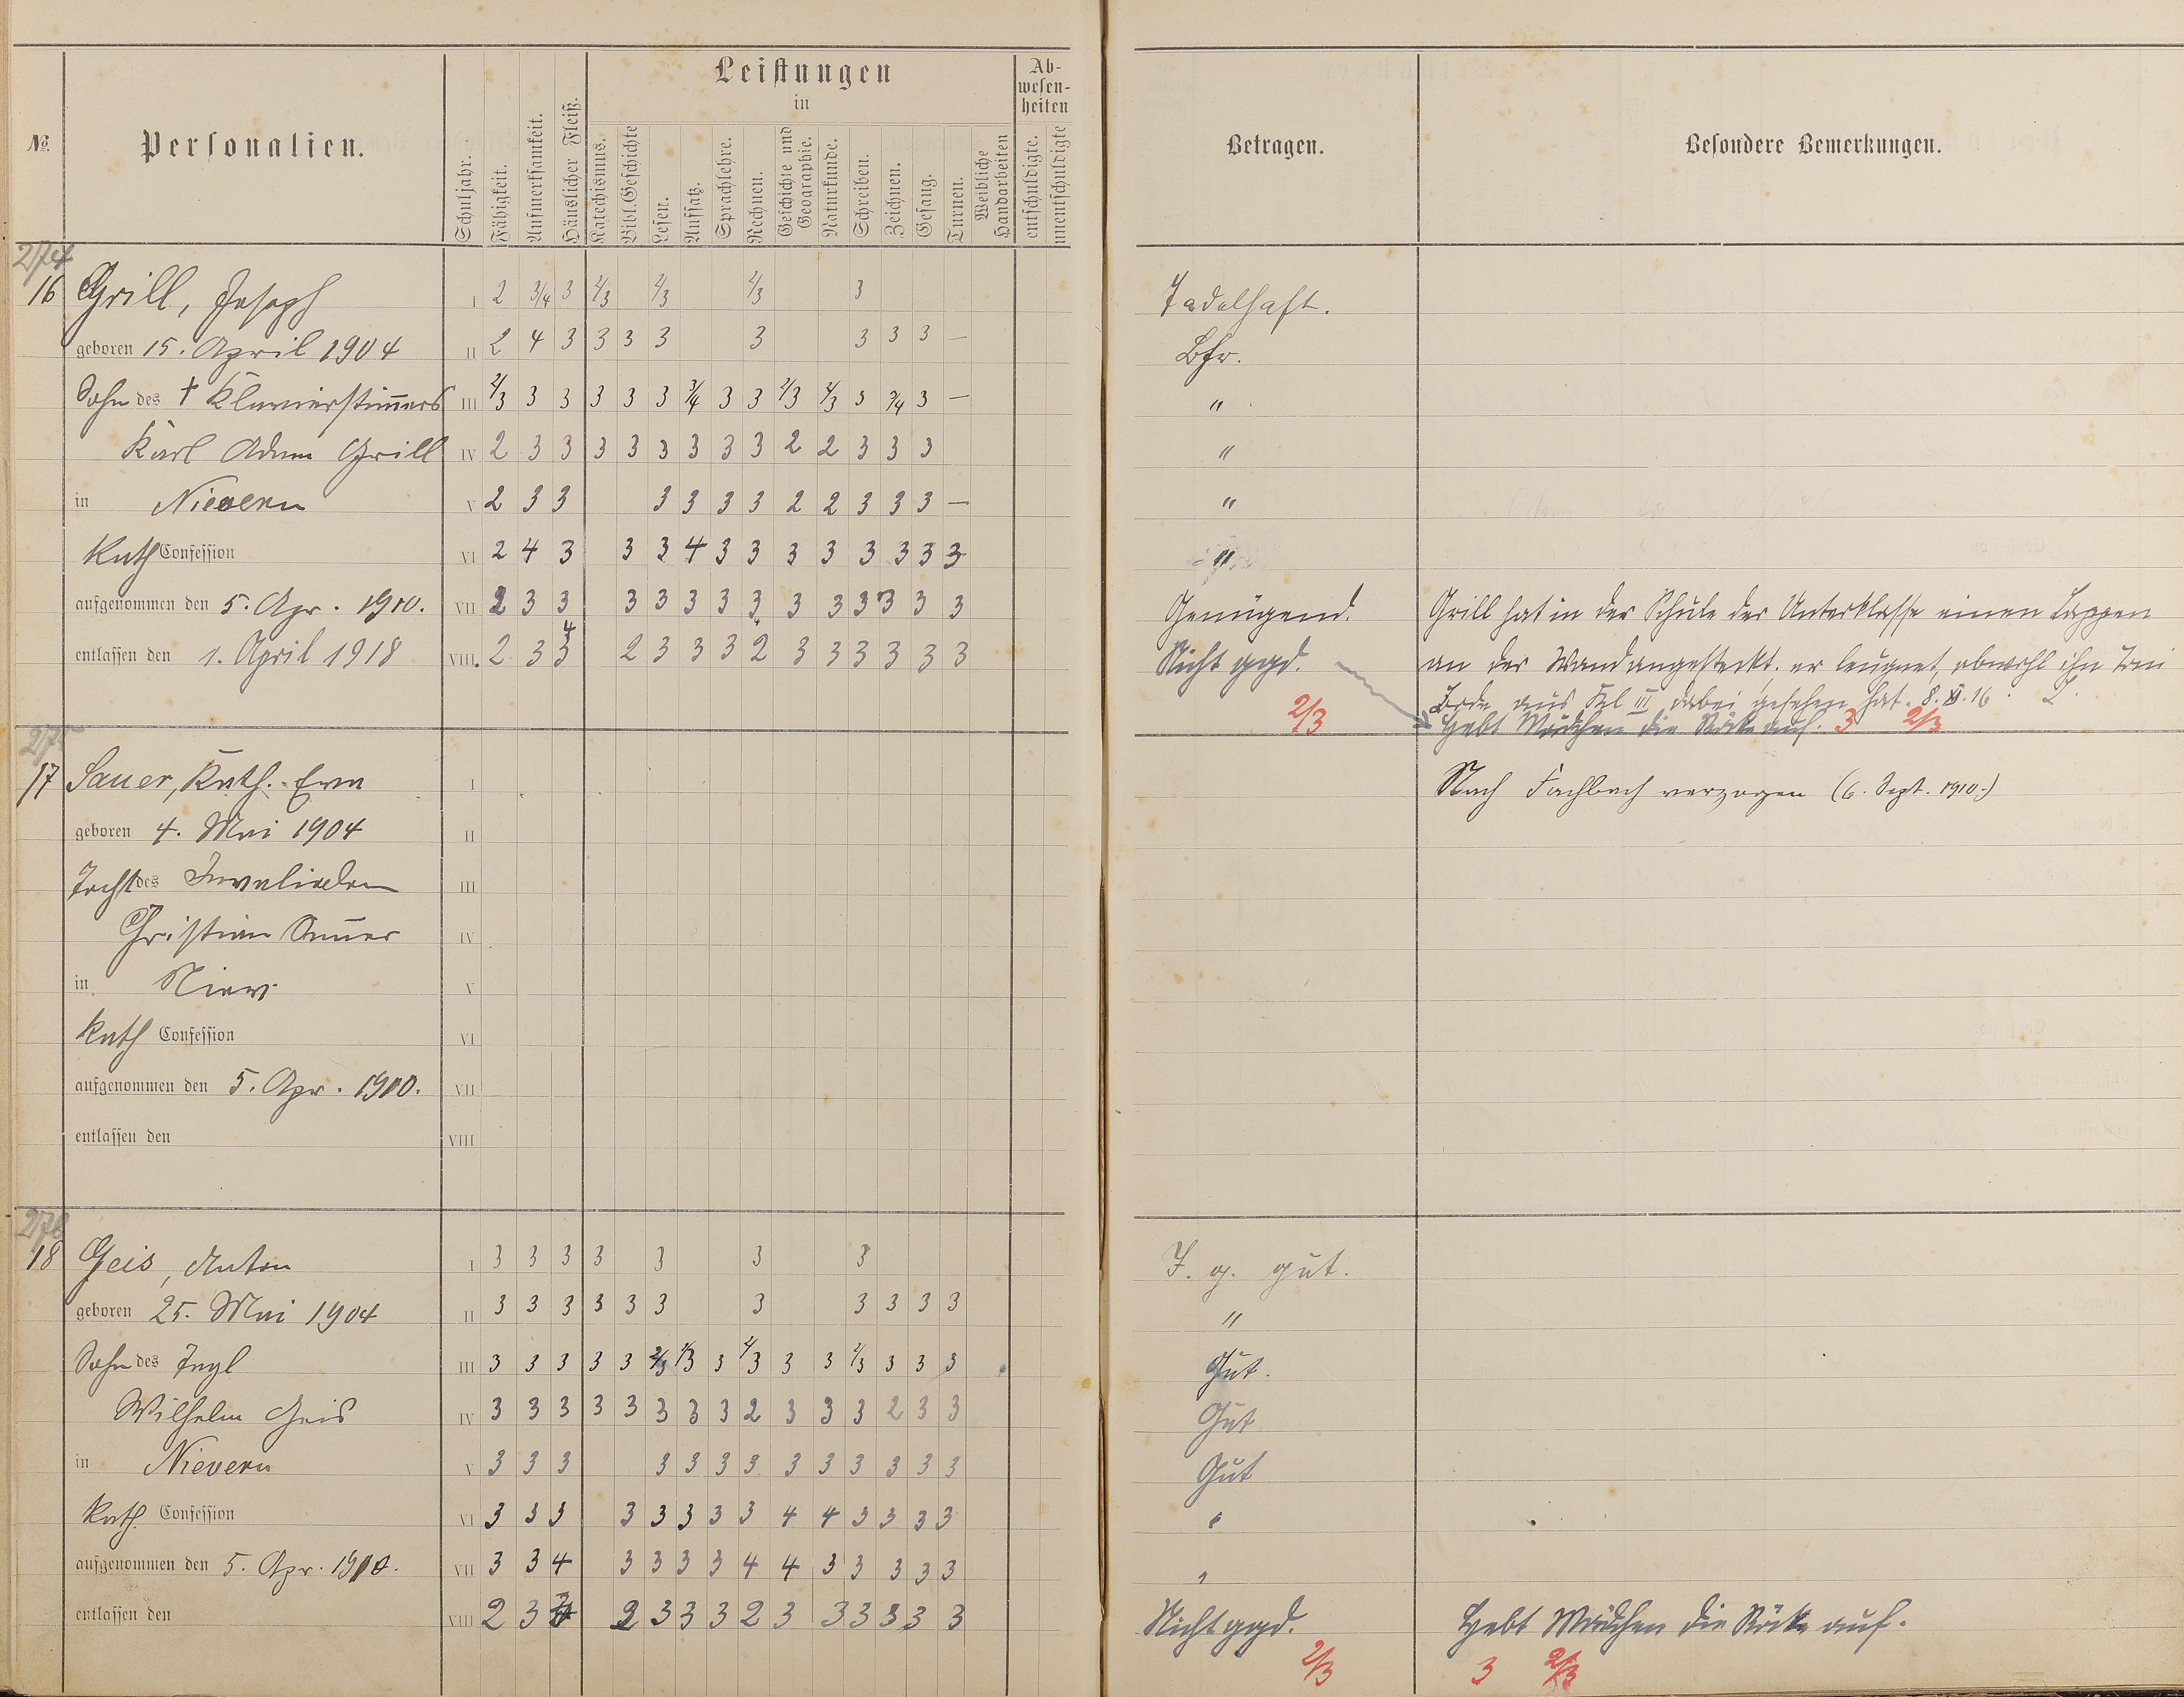 №.
Personalien.
Schuljahr.
Fähigkeit.
Aufmerksamkeit.
Häuslicher Fleiß.
Leistungen
in
Katechismus.
Bibl. Geschichte
Lesen.
Aufsatz.
Sprachlehre.
Rechnen.
Geschichte und
Geographie.
Naturkunde.
Schreiben.
Zeichnen.
Gesang.
Turnen.
Weibliche
Handarbeiten
Ab-
wesen-
heiten
entschuldigte.
unentschuldigte
Betragen.
Besondere Bemerkungen.
2/74
16 Grill, Joseph I 2 3/4 3 2/3 2/3 2/3 3 Tadelhaft.
geboren 15. April 1904 II 2 4 3 3 3 3 3 3 3 3 — Bfr.
Sohn des † Klavierstimmers III 2/3 3 3 3 3 3 3/4 3 3 2/3 2/3 3 3/4 3 — "
Karl Adam Grill IV 2 3 3 3 3 3 3 3 3 2 2 3 3 3 "
in Nievern V 2 3 3 3 3 3 3 2 2 3 3 3 — "
Kath Confession VI 2 4 3 3 3 4 3 3 3 3 3 3 3 3 "
aufgenommen den 5. Apr. 1910. VII 2 3 3 3 3 3 3 3 3 3 3 3 3 3 Genügend. Grill hat in der Schule der Unterklasse einen Lappen
entlassen den 1. April 1918 VIII. 2 3 3 4 2 3 3 3 2 3 3 3 3 3 3 Nicht ggd. an der Wand angesteckt, er leugnet, obwohl ihn
aus Kl III dabei gesehen hat. 8. XI. 16
2/3 Hebt Mädchen die Röcke auf. 3 2/3
2/75
17 Sauer, Kath. Eva I Nach Fachbach verzogen (6. Sept. 1910.)
geboren 4. Mai 1904 II
Tocht des Invaliden III
Christian Sauer IV
in Niev. V
Kath Confession VI
aufgenommen den 5. Apr. 1910. VII
entlassen den VIII
18 Geis, Anton I 3 3 3 3 3 3 3 Z. g. gut.
geboren 25. Mai 1904 II 3 3 3 3 3 3 3 3 3 3 3 "
Sohn des Tagl III 3 3 3 3 3 2/3 2/3 3 2/3 3 3 2/3 3 3 3 Gut.
Wilhelm Geis IV 3 3 3 3 3 3 3 3 2 3 3 3 2 3 3 Gut
in Nievern V 3 3 3 3 3 3 3 3 3 3 3 3 3 Gut
Kath. Confession VI 3 3 3 3 3 3 3 3 4 4 3 3 3 3 "
aufgenommen den 5. Apr. 1910. VII 3 3 4 3 3 3 3 4 4 3 3 3 3 3 "
entlassen den VIII 2 3 2 3 3 3 2 3 3 3 3 3 3 Nicht ggd. Hebt Mädchen die Röcke auf.
2/3 3 2/3